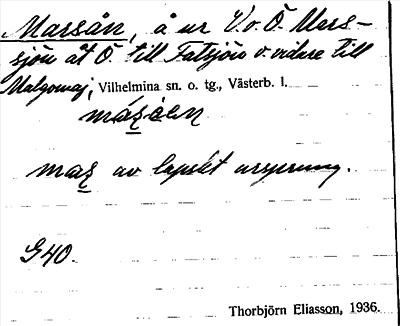 Marsån, å ur V. o. Ö. Mars-
sjön åt Ö. till Fatsjön o. vidare till
Malgomaj, Vilhelmina sn. o. tg., Västerb. l.
av lapskt ursprung.
G40.
Thorbjörn Eliasson, 1936.